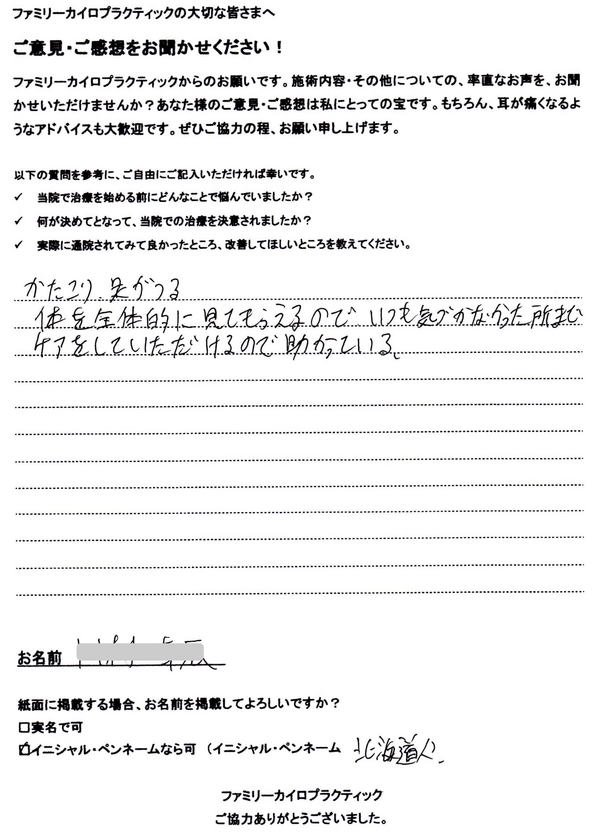 ファミリーカイロプラクティックの大切な皆さまへ
ご意見・ご感想をお聞かせください！
ファミリーカイロプラクティックからのお願いです。施術内容・その他についての、率直なお声を、お聞
かせいただけませんか？あなた様のご意見・ご感想は私にとっての宝です。もちろん、耳が痛くなるよ
うなアドバイスも大歓迎です。ぜひご協力の程、お願い申し上げます。
以下の質問を参考に、ご自由にご記入いただければ幸いです。
✓ 当院で治療を始める前にどんなことで悩んでいましたか？
✓ 何が決めてとなって、当院での治療を決意されましたか？
✓ 実際に通院されてみて良かったところ、改善してほしいところを教えてください。
かたこり、足がつる
体を全体的に見てもらえるので いつも気づかなかった所まで
ケアをしていただけるので助かっている。
お名前
紙面に掲載する場合、お名前を掲載してよろしいですか？
□実名で可
☑イニシャル・ペンネームなら可 （イニシャル・ペンネーム 北海道人
ファミリーカイロプラクティック
ご協力ありがとうございました。